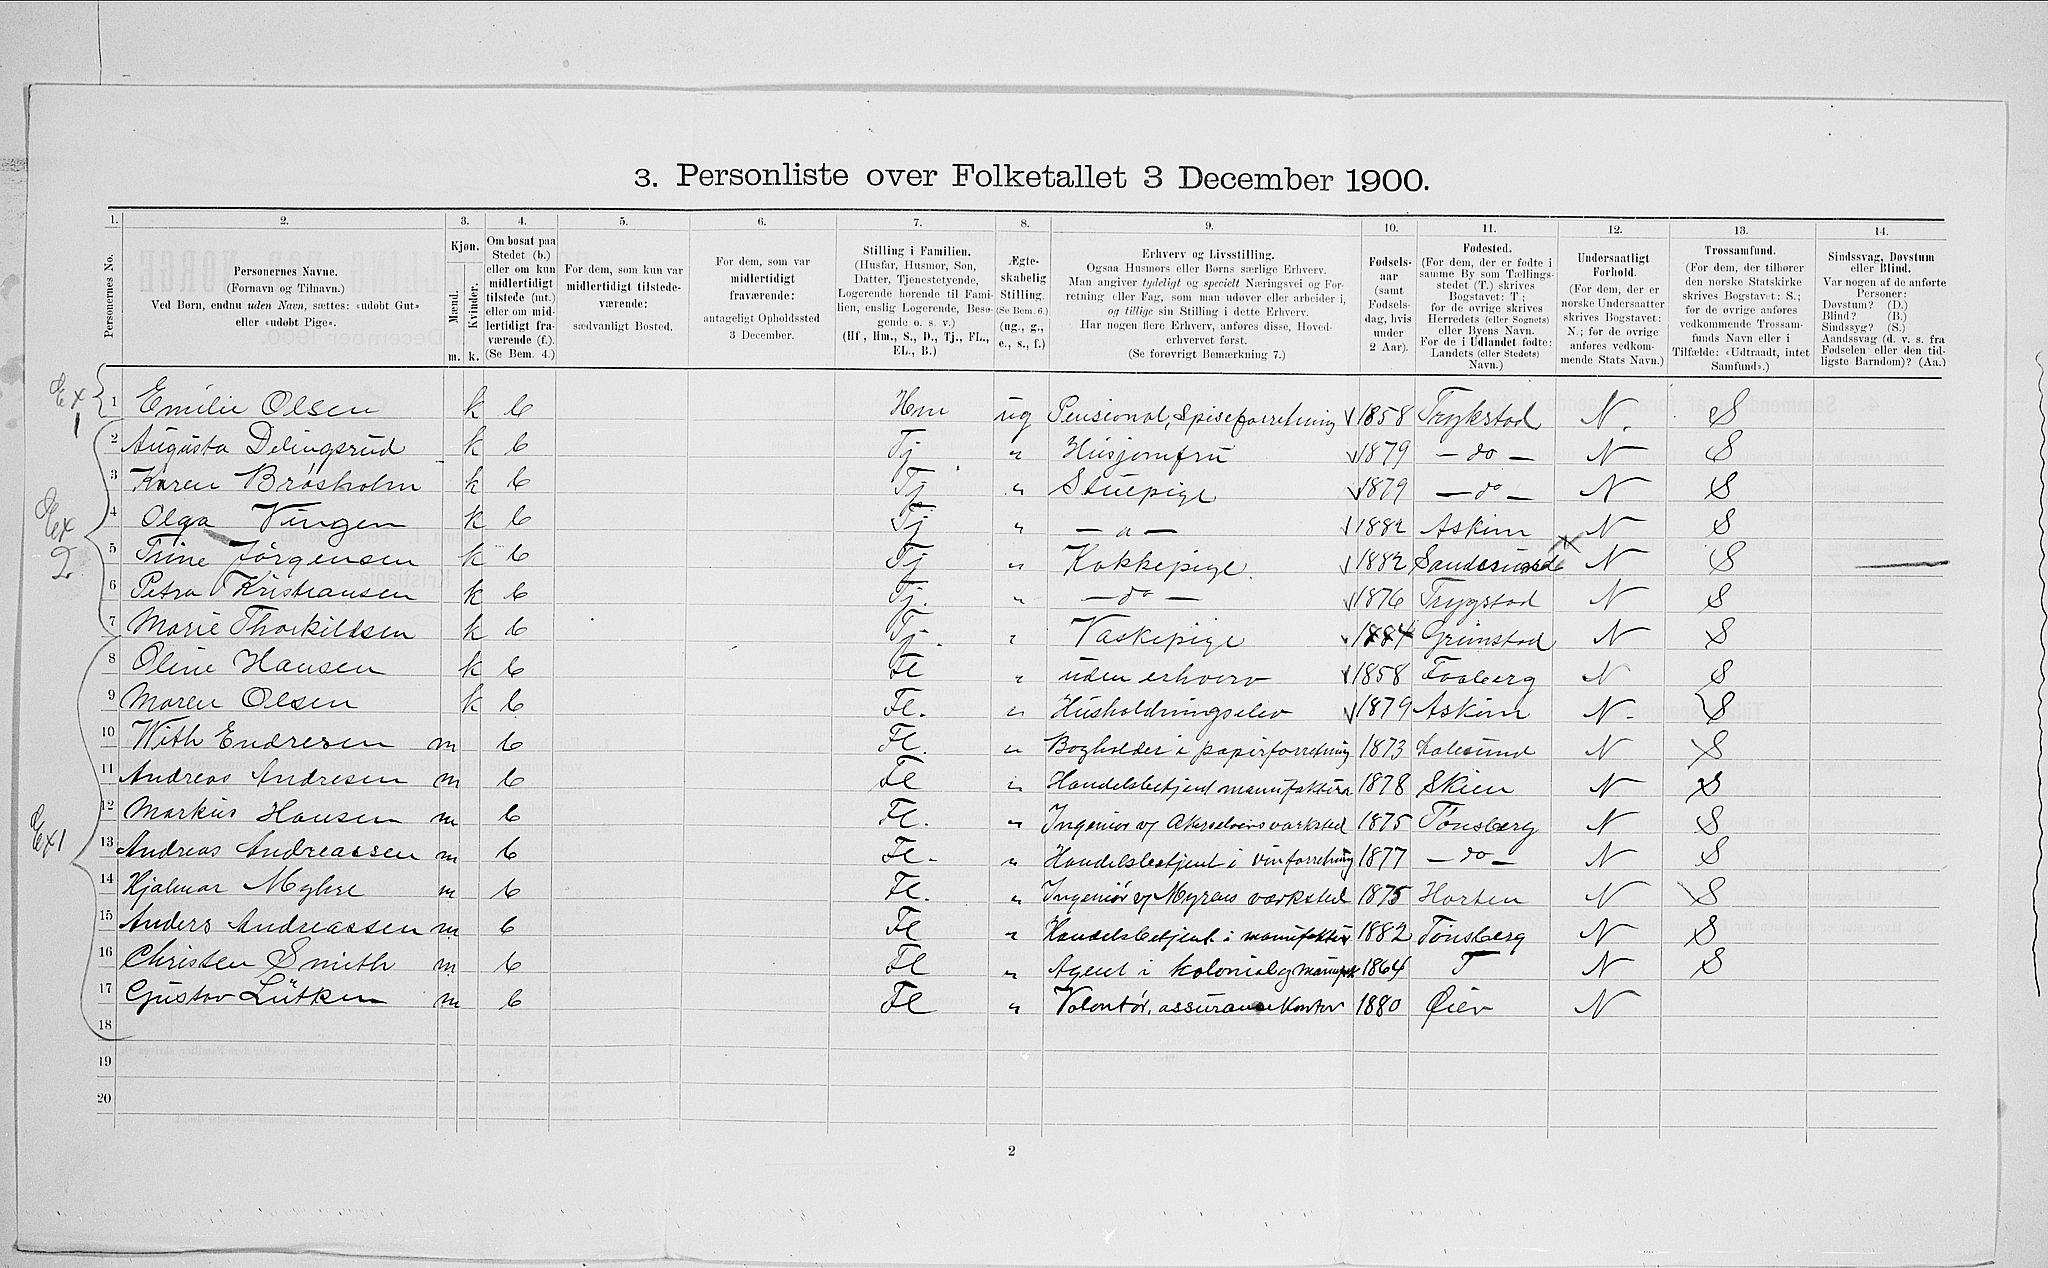 3. Personliste over Folketallet 3 December 1900.
1. 2. 3. 4. 5. 6. 7. 8. 9. 10. 11. 12. 13. 14.
Personernes No.
Personernes Navne.
(Fornavn og Tilnavn.)
Ved Børn, endnu uden Navn, sættes: «udobt Gut»
eller «udobt Pige».
Kjøn.
Mænd.
Kvinder.
m. k.
Om bosat paa
Stedet (b.)
eller om kun
midlertidigt
tilstede (mt.)
eller om mid-
lertidigt fra-
værende (f.).
(Se Bem. 4.)
For dem, som kun var
midlertidigt tilstede-
værende:
sædvanligt Bosted.
For dem, som var
midlertidigt
fraværende:
antageligt Opholdssted
3 December.
Stilling i Familien.
(Husfar, Husmor, Søn,
Datter, Tjenestetyende,
Logerende hørende til Fami-
lien, enslig Logerende, Besø-
gende o. s. v.)
(Hf., Hm., S., D., Tj., FL.,
EL., B.)
Ægte-
skabelig
Stilling.
(Se Bem. 6.)
(ug., g.,
e., s., f.)
Erhverv og Livsstilling.
Ogsaa Husmors eller Børns særlige Erhverv.
Man angiver tydeligt og specielt Næringsvei og For-
retning eller Fag, som man udøver eller arbeider i,
og tillige sin Stilling i dette Erhverv.
Har nogen flere Erhverv, anføres disse, Hoved-
erhvervet først.
(Se forøvrigt Bemærkning 7.)
Fødsels-
aar
(samt
Fødsels-
dag, hvis
under
2 Aar).
Fødested.
(For dem, der er fødte i
samme By som Tællings-
stedet (T.) skrives
Bogstavet: T;
for de øvrige skrives
Herredets (eller Sognets)
eller Byens Navn.
For de i Udlandet fødte:
Landets (eller Stedets)
Navn.)
Undersaatligt
Forhold.
(For dem, der er
norske Undersaatter
skrives Bogstavet:
N.; for de øvrige
anføres vedkom-
mende Stats Navn.)
Trossamfund.
(For dem, der tilhører
den norske Statskirke
skrives Bogstavet: S.;
for de øvrige anføres
vedkommende Trossam-
funds Navn eller i
Tilfælde: «Udtraadt, intet
Samfund».)
Sindssvag, Døvstum
eller Blind.
Var nogen af de anførte
Personer:
Døvstum? (D.)
Blind? (B.)
Sindssyg? (S.)
Aandssvag (d. v. s. fra
Fødselen eller den tid-
ligste Barndom)? (Aa.)
Ex 1
1 Emilie Olsen k b Hm ug Pensionat, Spiseforretning 1858 Trykstad N. S
2 Augusta Delingsrud k b Tj " Husjomfru 1879 — do — N S
3 Karen Brosholm k b Tj. " Stuepige 1879 — do — N S
Ex 2
4 Olga Vingen k b Tj " — a — 1882 Askim N S
5 Trine Jörgensen k b Tj " Kokkepige. 1882 Sandesund N S
6 Petra Kristiansen k b Tj. " — do — 1876 Trygstad N S
7 Marie Thorkildsen k b Tj. " Vaskepige 1884 Grimstad N S
8 Oline Hansen k b Fl " uden erhverv 1858 Faaberg N S
9 Maren Olsen k b Fl. " Husholdningselev 1879 Askim N. S
10 With Endresen m b Fl. " Bogholder i papirforretning 1873 Aalesund N S
11 Andreas Andresen m b Fl " Handelsbetjent manufaktur 1878 Skien N S
Ex 1
12 Markus Hansen m b Fl. " Ingeniör v/ Akerselvens værksted 1875 Tønsberg N S
13 Andreas Andreassen m b Fl. " Handelsbetjent i vinforretning 1877 — do — N S
14 Hjalmar Myhre m b Fl. " Ingeniör v/ Myrens værksted 1875 Horten N S
15 Anders Andreassen m b Fl " Handelsbetjent i manufaktur 1882 Tönsberg N S
16 Christen Smith m b Fl " Agent i kolonial og manufak 1864 T N S
17 Gustav Lütken m b Fl " Volontör, assurance kontor 1880 Øier N
18
19
20
2